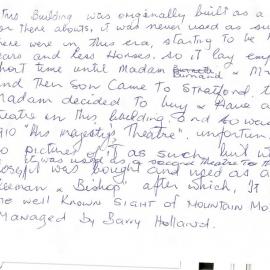 This Building was originally built as a
or there abouts, it was never used as su
here were in this era, starting to be
ears and less Horses. So it lay emp
hort time until Madam Burnand & M
and Then Son Came to Stratford, t
Madam decided to buy & Have a
eatre in this building and so wa
910 "His majesty's Theatre". unfortun
o picture of it as such, but
it was used as a second theatre to th
was bought and used as a
eeman & Bishop" after which, It
he well known sight of Mountain Mo
Managed by Barry Holland.